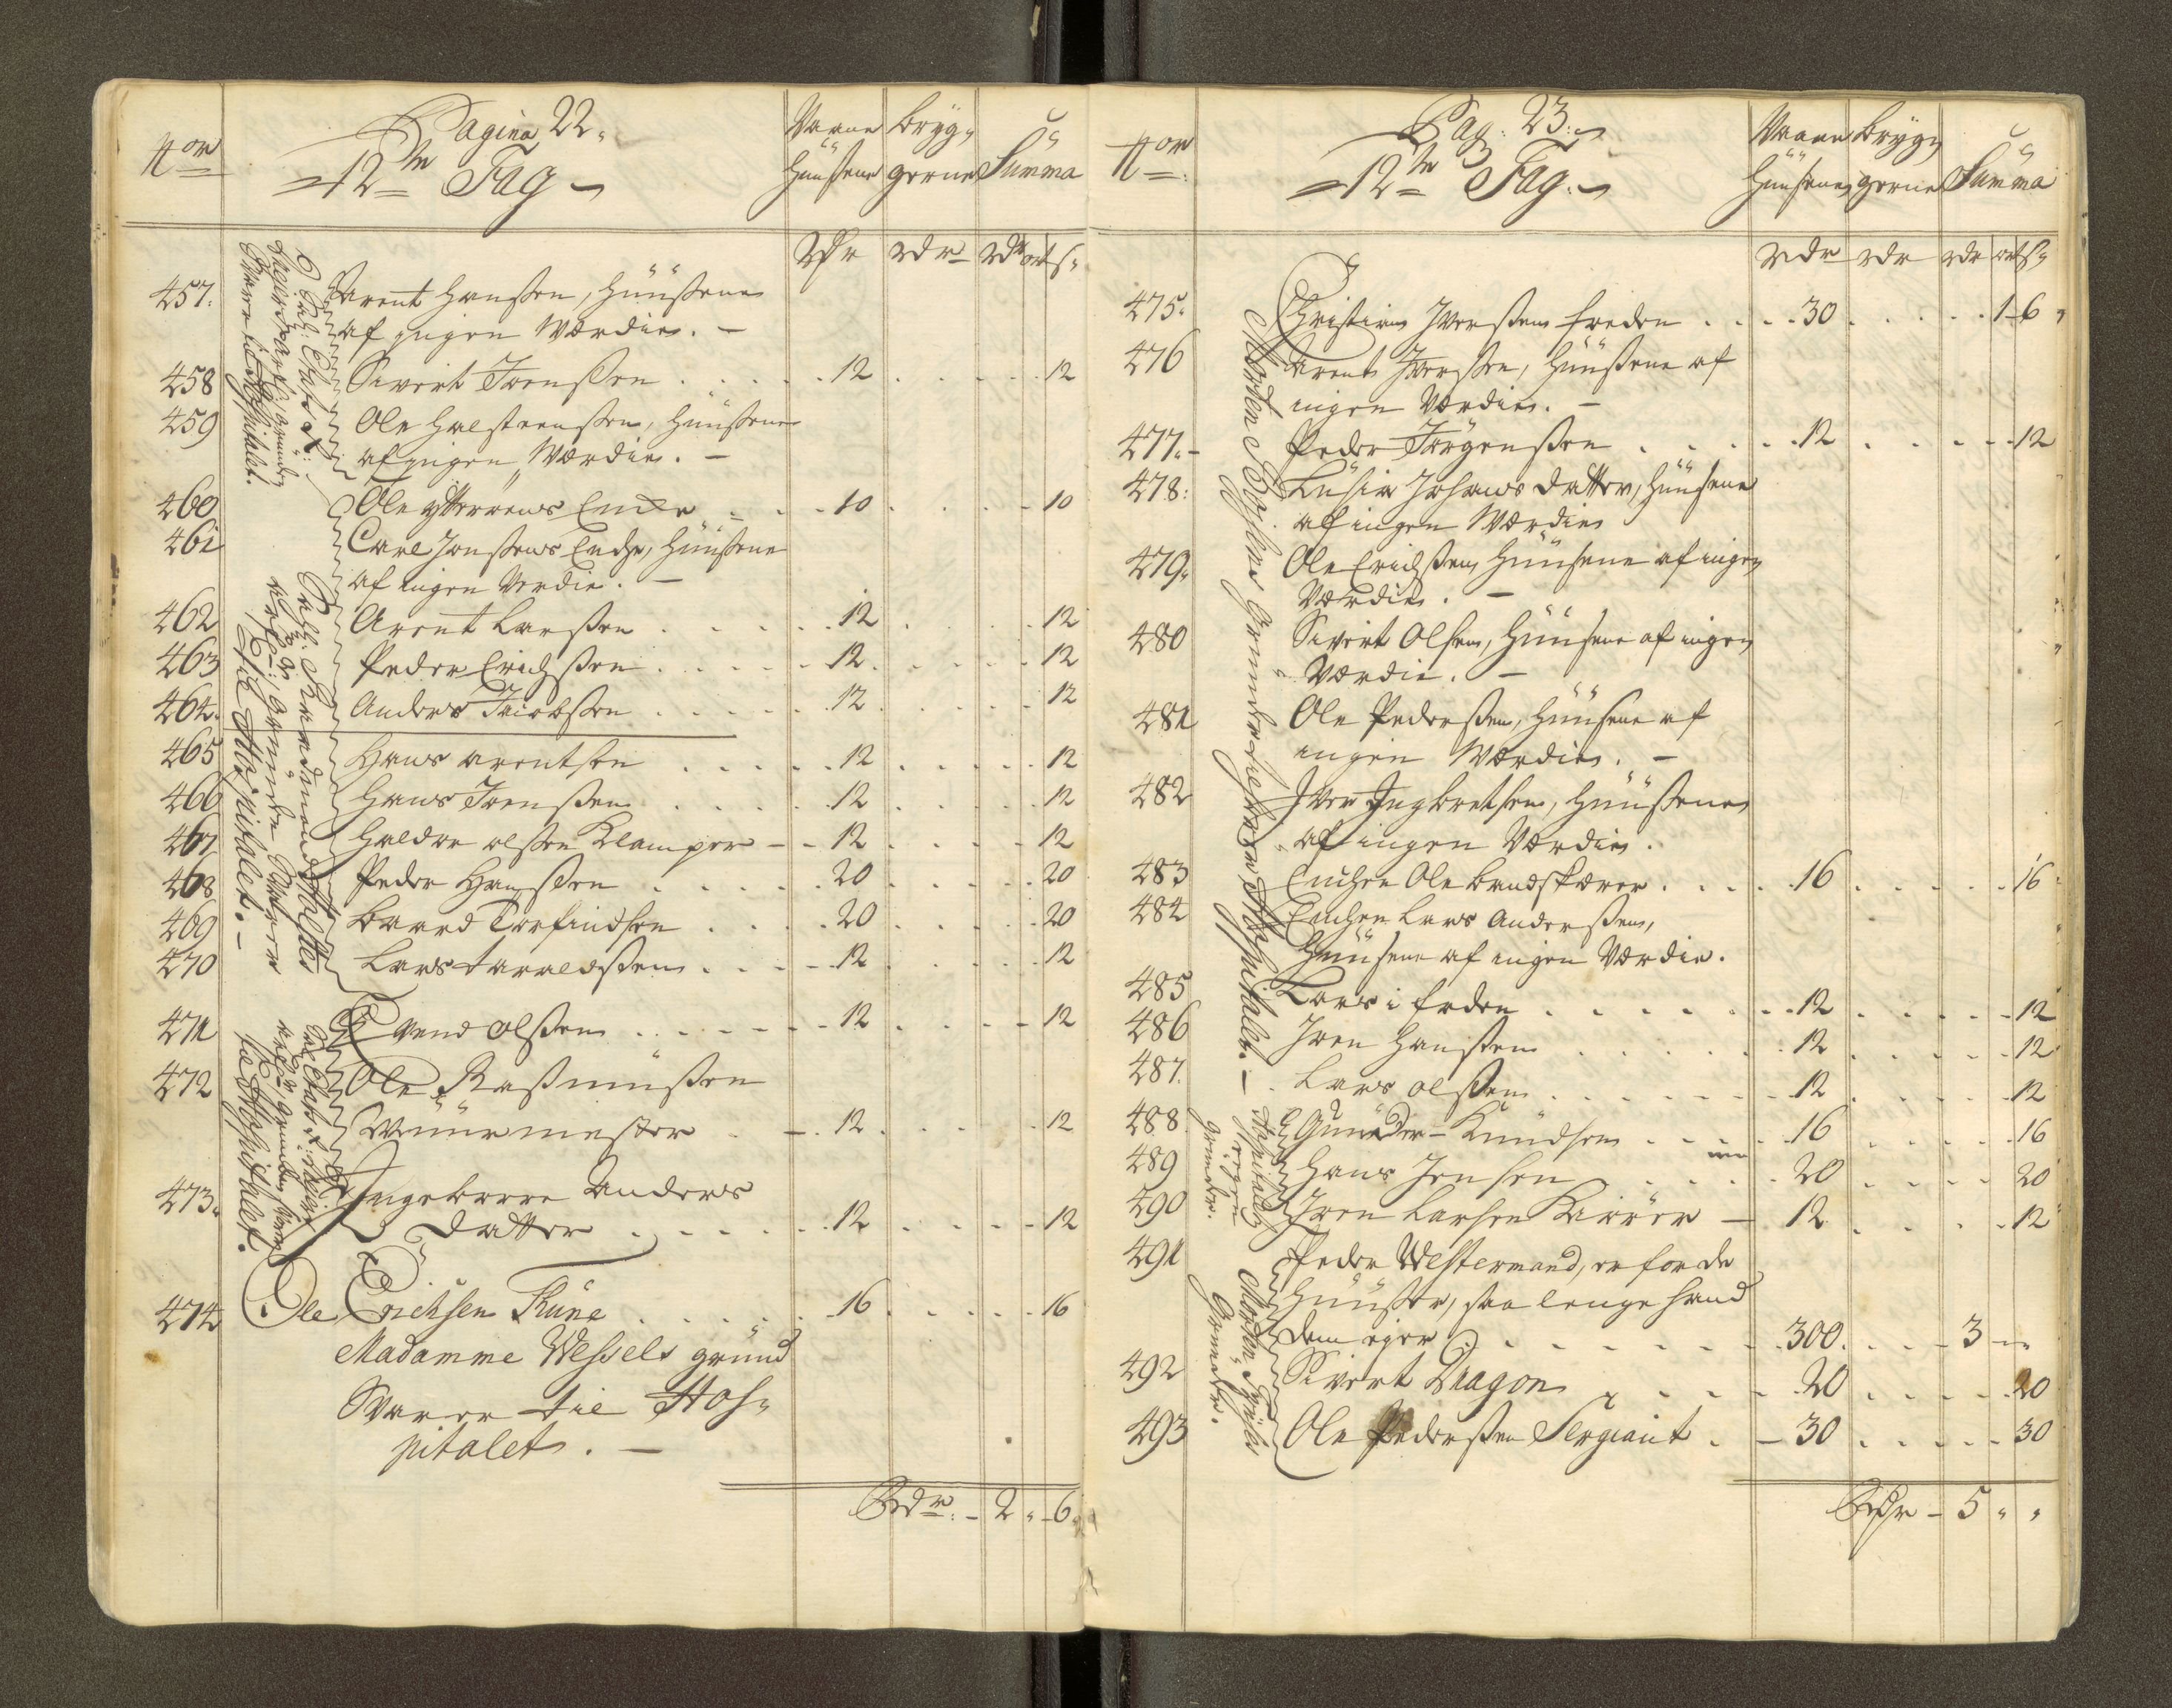 Pagina 22.
Nor
12te Fag
Vaane Hüüsene
Bryggerne
Summa
Rdr Rdr Rdr ort s
457. Arent Hanssen, Hüüsene
af ingen Værdie. -
458 Sivert Joenssen . . . 12 . . . 12
459 Ole Halsteenssen, Hüüsene
af ingen Værdie. -
460 Ole Ytterøens Encke . . . 10 . . . 10
461 Carl Jonssens Encke, Hüüsene
af ingen Verdie. -
462 Arent Larssen . . . 12 . . . 12
463 Peder Erichssen . . . 12 . . . 12
464. Anders Jacobssen . . . 12 . . . 12
465 Hans Arentsen . . . 12 . . . 12
466 Hans Joenssen . . . 12 . . . 12
467 Haldor olssen Klamper - - 12 . . . 12
468 Peder Hanssen . . . 20 . . . 20
469 Baard Torfindsen . . . 20 . . . 20
470 Lars Taraldssen . . . 12 . . . 12
471 Svend olssen . . . 12 . . . 12
472 Ole Rasmüssen
Müürmester . - . 12 . . . 12
473. Ingeborre Anders
Datter . . . 12 . . . 12
474 Ole Erichsen Rüne . . . 16 . . . 16
Madamme Wessels grund
Svarer til Hos-
pitalet. -
Rdr. - 2 " - 6.
til Hospitalet. -
til Hospitalet.
Pag: 23.
Nor
12te Fag.
Vaane Hüüsene
Bryggerne
Summa
Rdr Rdr Rdr ort s
475. Christian Iverssen Freden . . . 30 . . . 1 - 6
476 Arent Iverssen, Hüüsene af
ingen Værdie. -
477. - Peder Jørgenssen . . . 12 . . . 12
478: Lusia Johans datter, Hüüsene
af ingen Værdie
479. Ole Erichssen Hüüsene af ingen
Værdie. -
480 Sivert Olsen, Hüüsene af ingen
Værdie. -
481 Ole Pederssen, Hüüsene af
ingen Værdie. -
482 Iver Ingbretsen, Hüüsene
af ingen Værdie.
483 Enchen Ole Bandskærer . . . 16 . . . 16
484 Enchen Lars Anderssen,
Hüüsene af ingen Værdie.
485 Lars i Erden . . . 12 . . . 12
486 Joen Hanssen . . . 12 . . . 12
487. Lars olssen . . . 12 . . . 12
488 Gunder Knudsen . . . 16 . . . 16
489 Hans Jensen . . . 20 . . . 20
490 Joen Larsen Kiører - 12 . . . 12
491 Peder Westermand, er for de
Hüüser, saa lenge hand
dem eger . . . 300 . . . 3 -
492 Sivert Dragon . . . 20 . . . 20
493 Ole Pederssen Sergiant . - 30 . . . 30
Rdr - 5 " "
Hospitalets
egen
Grunder.
Grunder.